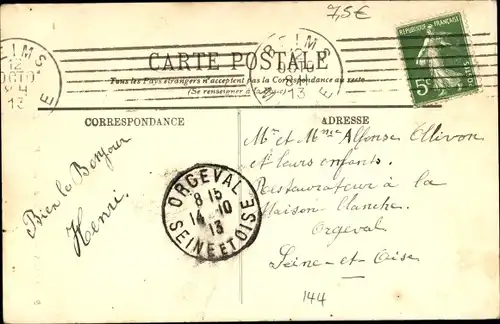 7,5€
REIMS
12
OCTO
24
13
CARTE POSTALE
Tous les Pays étrangers n'acceptent pas la Correspondance au recto
(Se renseigner à la Poste)
REIMS
13
RÉPUBLIQUE FRANÇAISE
5c
POSTES
CORRESPONDANCE
ADRESSE
Bien le Bonjour
Henri.
ORGEVAL
8 15
14 - 10
13
SEINE ET OISE
Mr et Mme Alfonse Ollivon
et leurs enfants.
Restaurateur à la
Maison blanche.
Orgeval
Seine-et-Oise
144